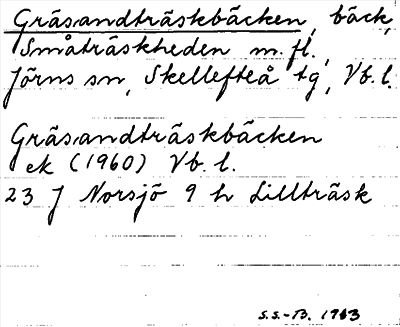 Gräsandträskbäcken, bäck,
Småträskheden m. fl.,
Jörns sn, Skellefteå tg, Vb. l.
Gräsandträskbäcken
ek (1960) Vb. l.
23 J Norsjö 9 h Lillträsk
S.S.-B. 1963